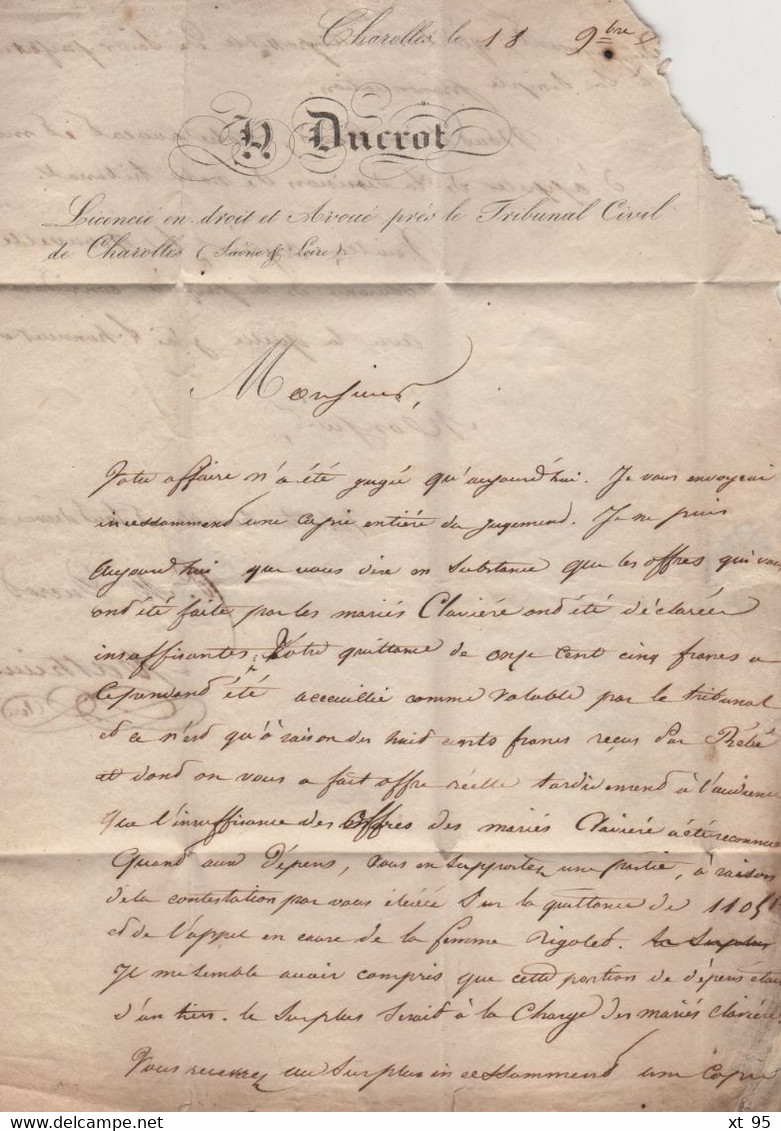 Charolles, le 18 9bre
H. Ducrot
Licencié en droit et Avoué près le Tribunal Civil
de Charolles (Saône & Loire)
Monsieur,
Votre affaire n'a été jugée qu'aujourd'hui. Je vous envoyerai
incessamment une copie entière du jugement. Je ne puis
aujourd'hui que vous dire en substance que les offres qui vous
ont été faite par les mariés Clavière ont été déclarée
insuffisantes. Votre quittance de onze cent cinq francs a
cependant été accueillie comme valable par le tribunal
et ce n'est qu'à raison des huit cents francs reçus par
et dont on vous a fait offre réelle tardivement à l'audience
que l'insuffisance des offres des mariés Clavière a été reconnue
Quand aux Dépens, vous en supportez une partie, à raison
de la contestation par vous élevée sur la quittance de 1105 f
et de l'appel en cause de la femme Rigolet. le surplus
Il me semble avoir compris que cette portion de dépens était
d'un tiers. le surplus serait à la charge des mariés Clavière
Vous recevrez au surplus incessamment une copie
xt 95